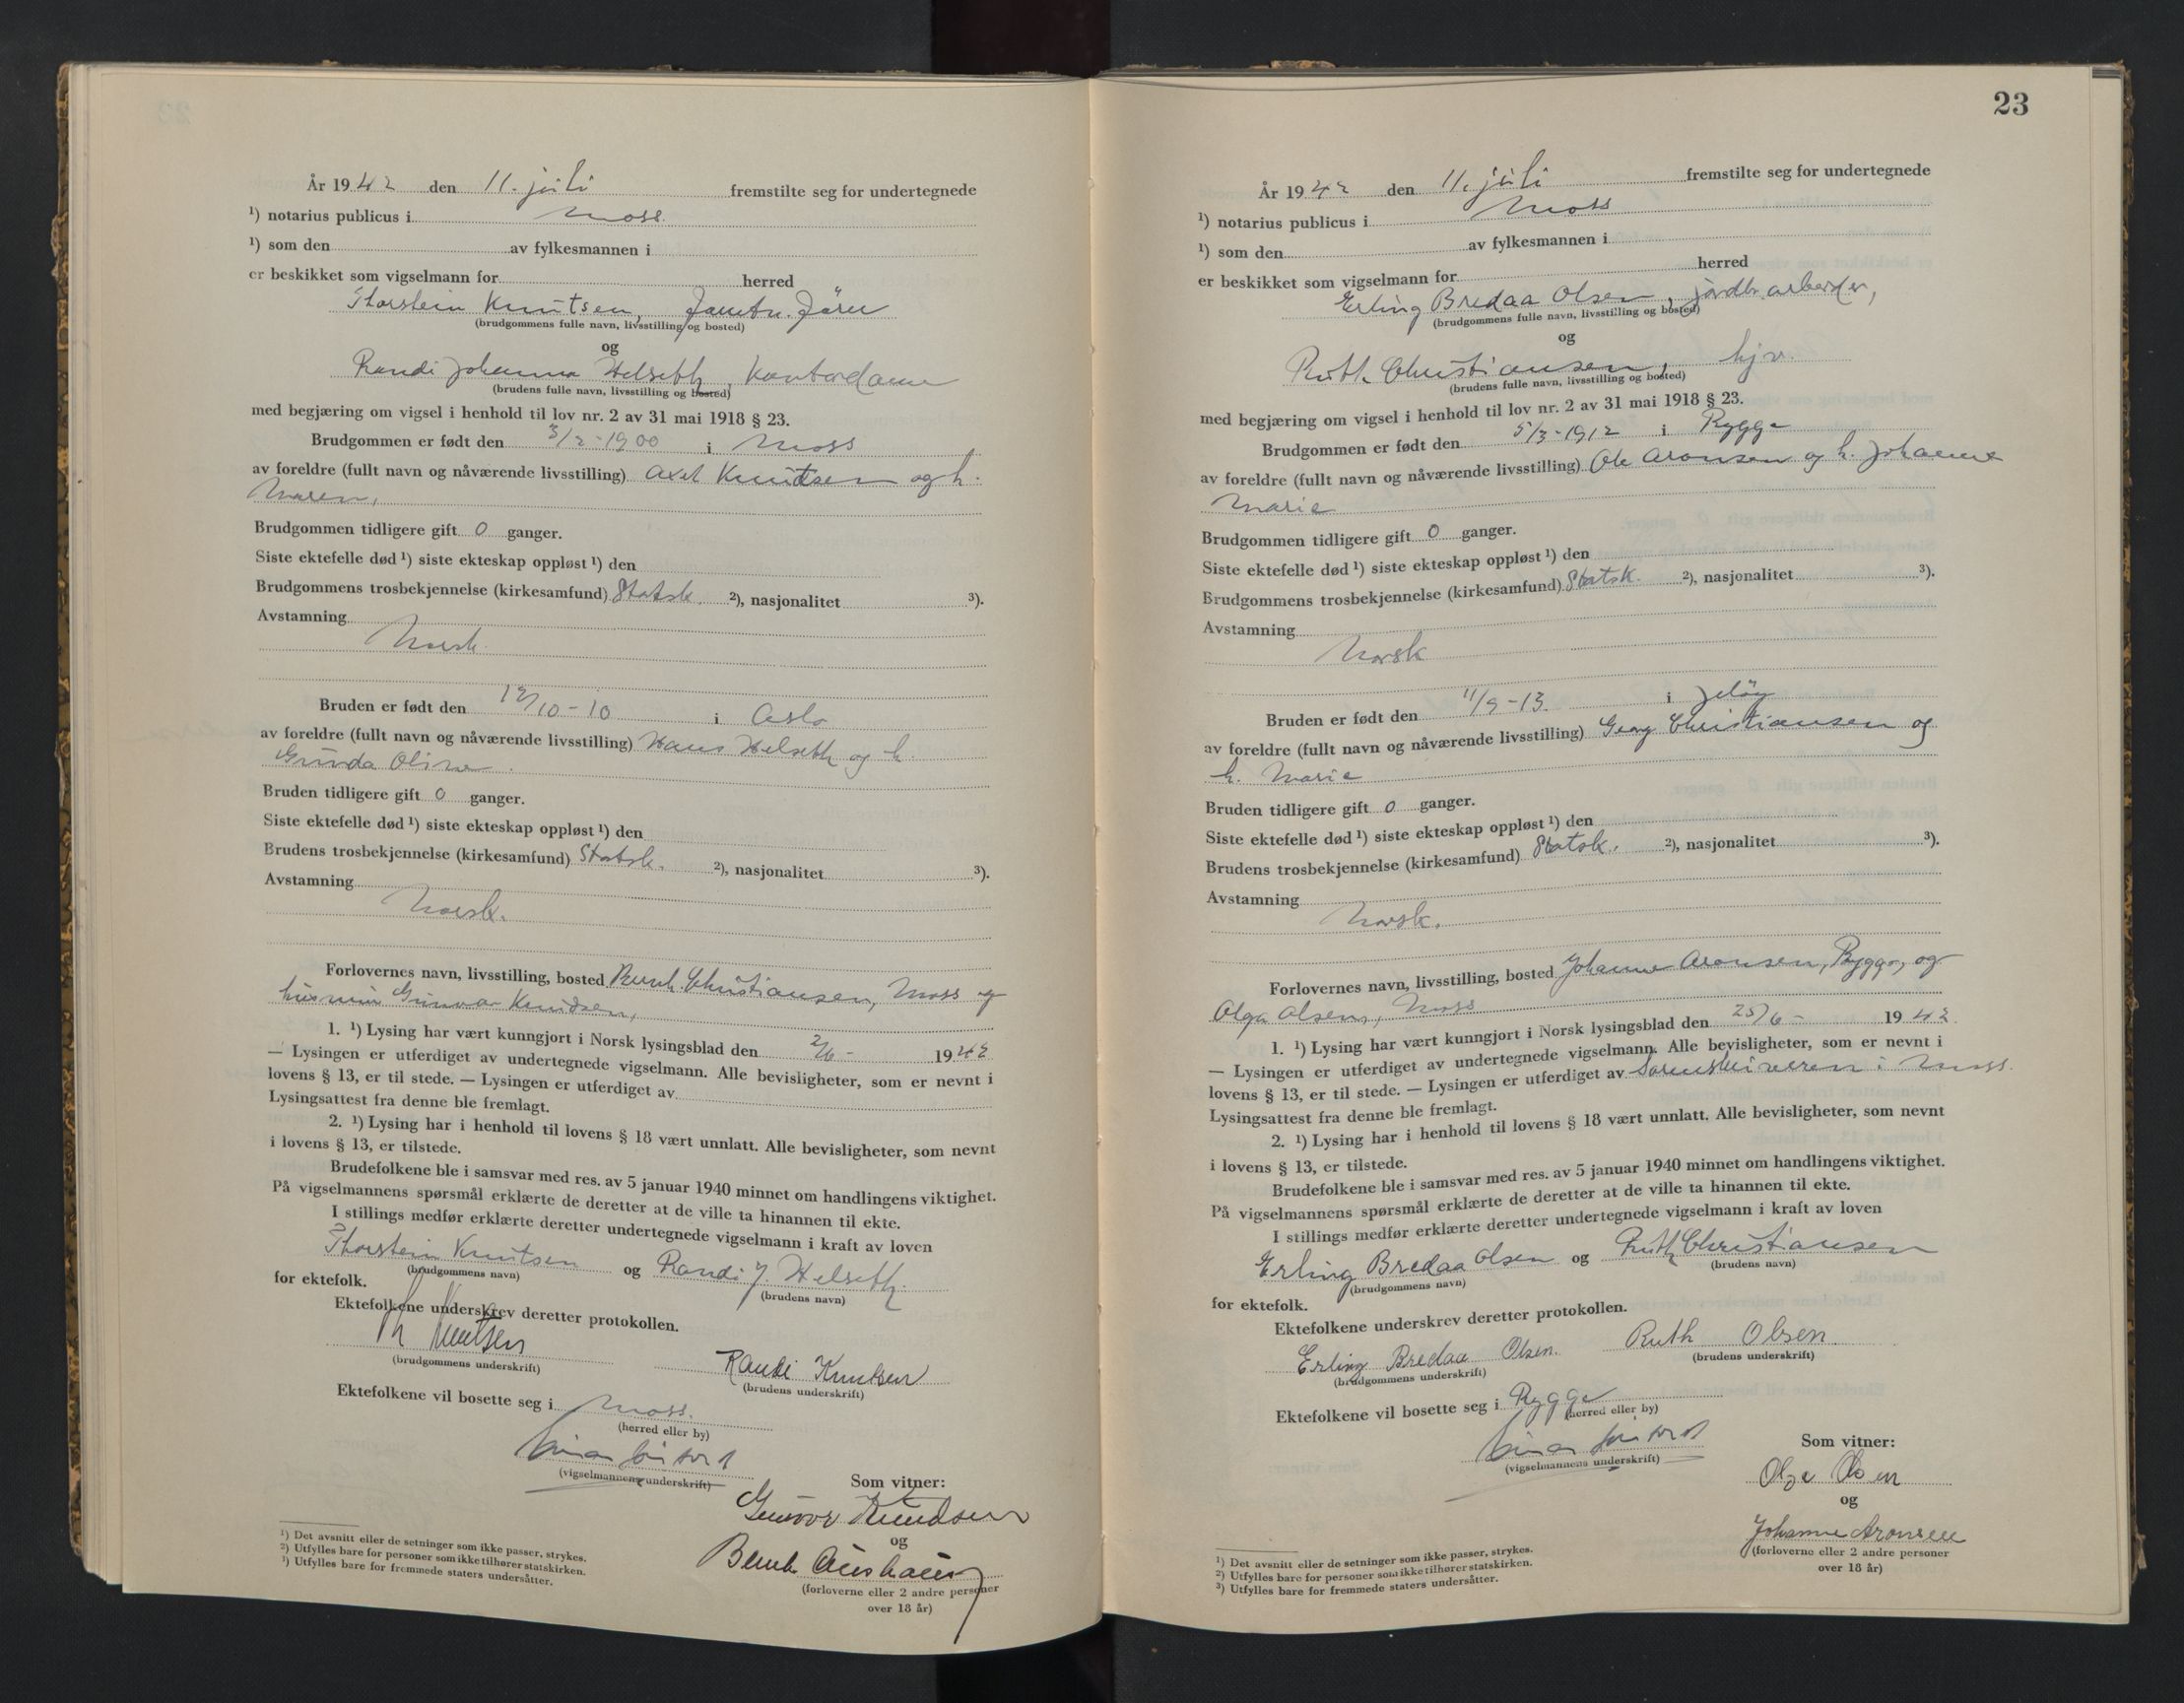 År 1942 den 11. juli fremstilte seg for undertegnede
¹) notarius publicus i Moss.
¹) som den av fylkesmannen i
er beskikket som vigselmann for herred
Thorstein Knutsen,
(brudgommens fulle navn, livsstilling og bosted)
og
Randi Johanna Helseth, Kontordame
(brudens fulle navn, livsstilling og bosted)
med begjæring om vigsel i henhold til lov nr. 2 av 31 mai 1918 § 23.
Brudgommen er født den 3/2-1900 i Moss
av foreldre (fullt navn og nåværende livsstilling) Axel Knudsen og h.
Maren,
Brudgommen tidligere gift 0 ganger.
Siste ektefelle død ¹) siste ekteskap oppløst ¹) den
Brudgommens trosbekjennelse (kirkesamfund) Statsk. ²), nasjonalitet ³).
Avstamning
Norsk.
Bruden er født den 12/10-10 i Oslo
av foreldre (fullt navn og nåværende livsstilling) Hans Helseth og h.
Gunda Oline.
Bruden tidligere gift 0 ganger.
Siste ektefelle død ¹) siste ekteskap oppløst ¹) den
Brudens trosbekjennelse (kirkesamfund) Statsk. ²), nasjonalitet ³).
Avstamning
Norsk.
Forlovernes navn, livsstilling, bosted Bernh. Christiansen, Moss og
Gunvor Knudsen,
1. ¹) Lysing har vært kunngjort i Norsk lysingsblad den 2/6- 1942
— Lysingen er utferdiget av undertegnede vigselmann. Alle bevisligheter, som er nevnt i
lovens § 13, er til stede. — Lysingen er utferdiget av
Lysingsattest fra denne ble fremlagt.
2. ¹) Lysing har i henhold til lovens § 18 vært unnlatt. Alle bevisligheter, som nevnt
i lovens § 13, er tilstede.
Brudefolkene ble i samsvar med res. av 5 januar 1940 minnet om handlingens viktighet.
På vigselmannens spørsmål erklærte de deretter at de ville ta hinannen til ekte.
I stillings medfør erklærte deretter undertegnede vigselmann i kraft av loven
Thorstein Knutsen og Randi J. Helseth.
(brudgommens navn) (brudens navn)
for ektefolk.
Ektefolkene underskrev deretter protokollen.
Th Knutsen Randi Knutsen
(brudgommens underskrift) (brudens underskrift)
Ektefolkene vil bosette seg i Moss.
(herred eller by)
(vigselmannens underskrift)
Som vitner:
Gunvor Knudsen
og
Bernh
(forloverne eller 2 andre personer
over 18 år)
¹) Det avsnitt eller de setninger som ikke passer, strykes.
²) Utfylles bare for personer som ikke tilhører statskirken.
³) Utfylles bare for fremmede staters undersåtter.
23
År 1942 den 11. juli fremstilte seg for undertegnede
¹) notarius publicus i Moss
¹) som den av fylkesmannen i
er beskikket som vigselmann for herred
Erling Bredaa Olsen, jordbr. arbeider,
(brudgommens fulle navn, livsstilling og bosted)
og
Ruth Christiansen, hjv.
(brudens fulle navn, livsstilling og bosted)
med begjæring om vigsel i henhold til lov nr. 2 av 31 mai 1918 § 23.
Brudgommen er født den 5/3-1912 i Rygge
av foreldre (fullt navn og nåværende livsstilling) Ole Aronsen og h. Johanne
Marie
Brudgommen tidligere gift 0 ganger.
Siste ektefelle død ¹) siste ekteskap oppløst ¹) den
Brudgommens trosbekjennelse (kirkesamfund) Statsk. ²), nasjonalitet ³).
Avstamning
Norsk
Bruden er født den 11/9-13. i Jeløy
av foreldre (fullt navn og nåværende livsstilling) Georg Christiansen og
h. Marie
Bruden tidligere gift 0 ganger.
Siste ektefelle død ¹) siste ekteskap oppløst ¹) den
Brudens trosbekjennelse (kirkesamfund) Statsk. ²), nasjonalitet ³).
Avstamning
Norsk.
Forlovernes navn, livsstilling, bosted Johanne Aronsen, Rygge, og
Olga Olsen, Moss
1. ¹) Lysing har vært kunngjort i Norsk lysingsblad den 25/6- 1942.
— Lysingen er utferdiget av undertegnede vigselmann. Alle bevisligheter, som er nevnt i
lovens § 13, er til stede. — Lysingen er utferdiget av Sorenskriveren i Moss.
Lysingsattest fra denne ble fremlagt.
2. ¹) Lysing har i henhold til lovens § 18 vært unnlatt. Alle bevisligheter, som nevnt
i lovens § 13, er tilstede.
Brudefolkene ble i samsvar med res. av 5 januar 1940 minnet om handlingens viktighet.
På vigselmannens spørsmål erklærte de deretter at de ville ta hinannen til ekte.
I stillings medfør erklærte deretter undertegnede vigselmann i kraft av loven
Erling Bredaa Olsen og Ruth Christiansen
(brudgommens navn) (brudens navn)
for ektefolk.
Ektefolkene underskrev deretter protokollen.
Erling Bredaa Olsen. Ruth Olsen.
(brudgommens underskrift) (brudens underskrift)
Ektefolkene vil bosette seg i Rygge
(herred eller by)
(vigselmannens underskrift)
Som vitner:
Olga Olsen
og
Johanne Aronsen
(forloverne eller 2 andre personer
over 18 år)
¹) Det avsnitt eller de setninger som ikke passer, strykes.
²) Utfylles bare for personer som ikke tilhører statskirken.
³) Utfylles bare for fremmede staters undersåtter.